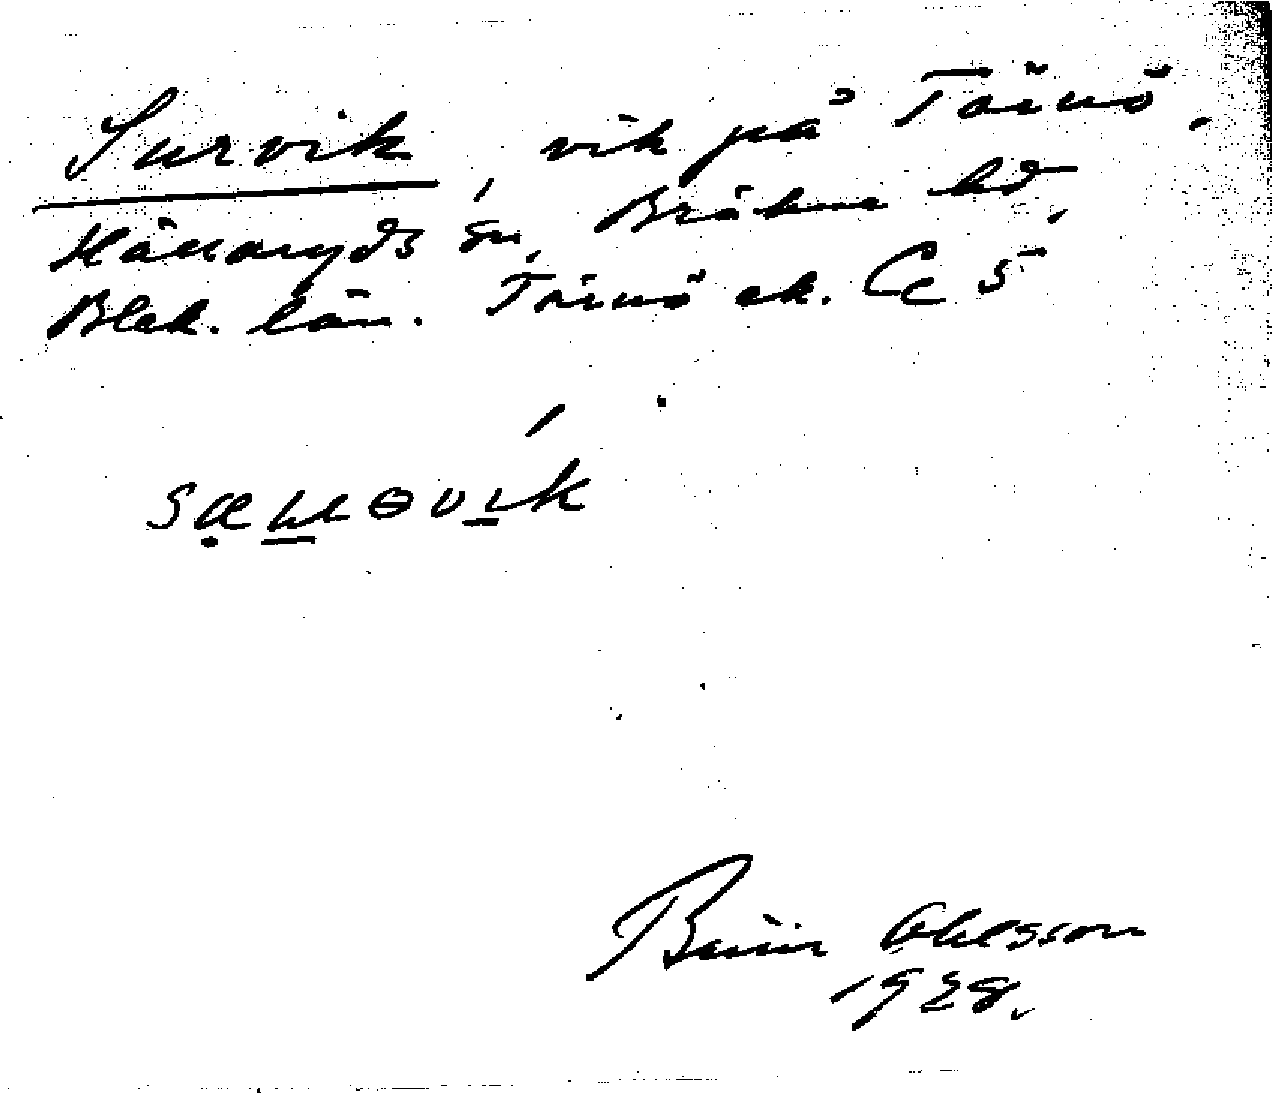 Survik, vik på Tärnö,
Hällaryds sn, Bräkne hd,
Blek. län. Tärnö ek. Cc 5
Ohlsson
1928.